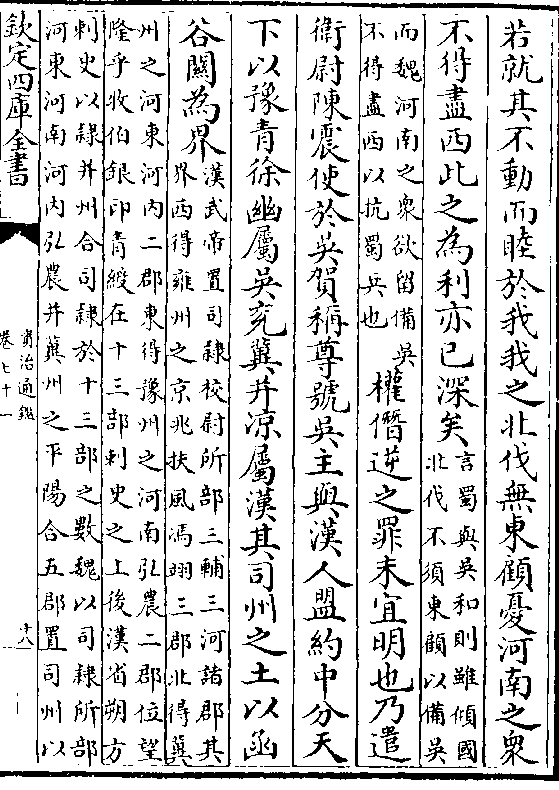 若就其不動而睦於我我之北伐無東顧憂河南之衆
不得盡西此之為利亦已深矣言蜀與吳和則雖傾國
北伐不須東顧以備吳
而魏河南之衆欲留備吳
不得盡西以抗蜀兵也權僭逆之罪未宜明也乃遣
衛尉陳震使於吳賀稱尊號吳主與漢人盟約中分天
下以豫青徐幽屬吳兖冀并凉屬漢其司州之土以函
谷關為界漢武帝置司隸校尉所部三輔三河諸郡其
界西得雍州之京兆扶風馮翊三郡北得冀
州之河東河內二郡東得豫州之河南弘農二郡位望
隆乎牧伯銀印青綬在十三部刺史之上後漢省朔方
刺史以隸并州合司隸於十三部之數魏以司隸所部
河東河南河內弘農并冀州之平陽合五郡置司州以
欽定四庫全書
資治通鑑
卷七十一
十八